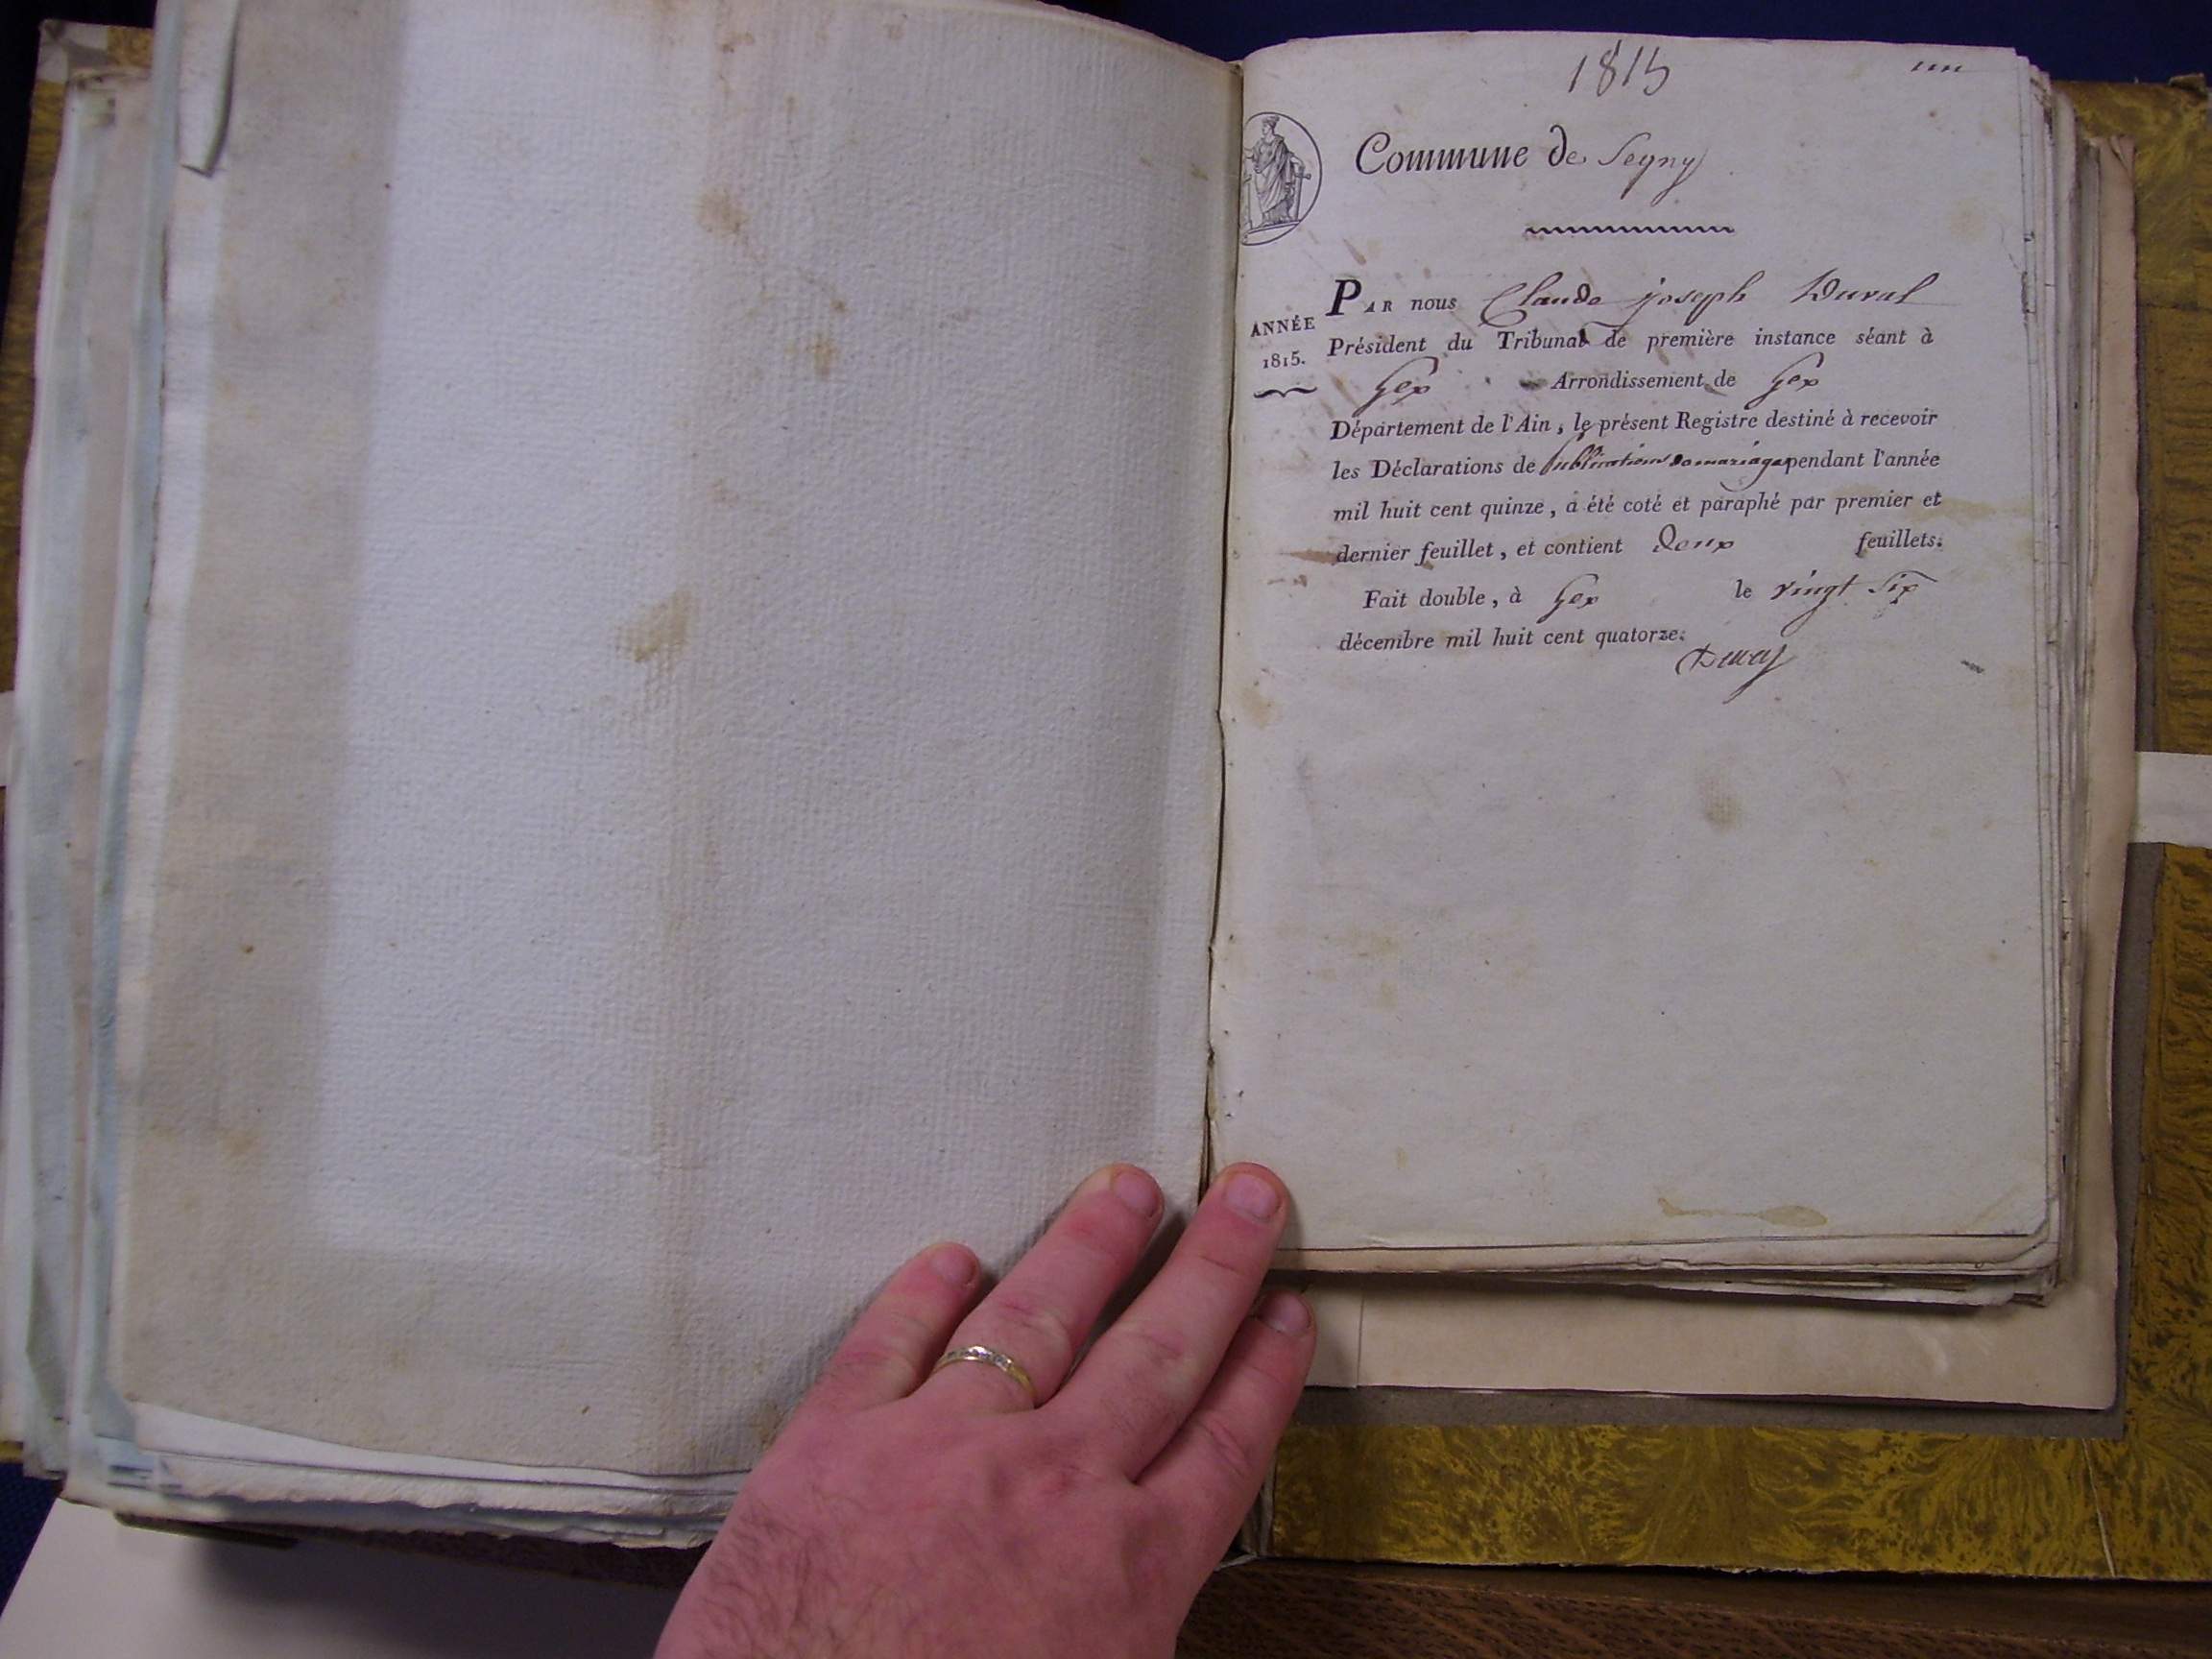 1815
Commune de Segny
ANNÉE
1815.
PAR nous Claude joseph Duval
Président du Tribunal de première instance séant à
Gex Arrondissement de Gex
Département de l'Ain, le présent Registre destiné à recevoir
les Déclarations de Publications de mariage pendant l'année
mil huit cent quinze, a été coté et paraphé par premier et
dernier feuillet, et contient Deux feuillets.
Fait double, à Gex le vingt Six
décembre mil huit cent quatorze.
Duval